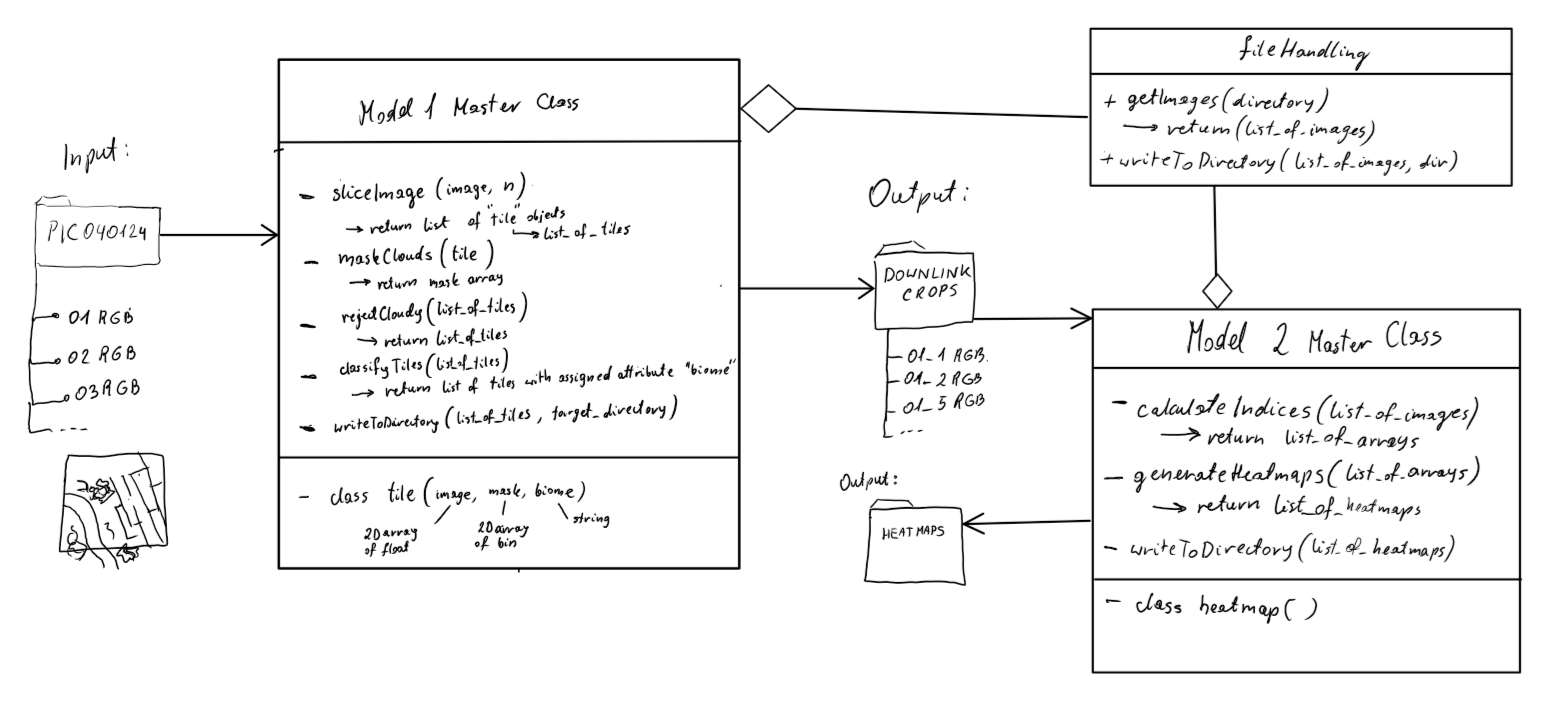 Input:
PIC040124
01 RGB
02 RGB
03 RGB
Model 1 Master Class
- sliceImage (image, n)
→ return list of "tile" objects
→ list_of_tiles
- maskClouds (tile)
→ return mask array
- rejectCloudy (list_of_tiles)
→ return list_of_tiles
- classifyTiles (list_of_tiles)
→ return list of tiles with assigned attribute "biome"
- writeToDirectory (list_of_tiles, target_directory)
- class tile (image, mask, biome)
2D array
of float
2D array
of bin
string
fileHandling
+ getImages (directory)
→ return (list_of_images)
+ writeToDirectory (list_of_images, dir)
Output:
DOWNLINK
CROPS
01_1 RGB.
01_2 RGB
01_5 RGB
Model 2 Master Class
- calculateIndices (list_of_images)
→ return list_of_arrays
- generateHeatmaps (list_of_arrays)
→ return list_of_heatmaps
- writeToDirectory (list_of_heatmaps)
- class heatmap ( )
Output:
HEATMAPS